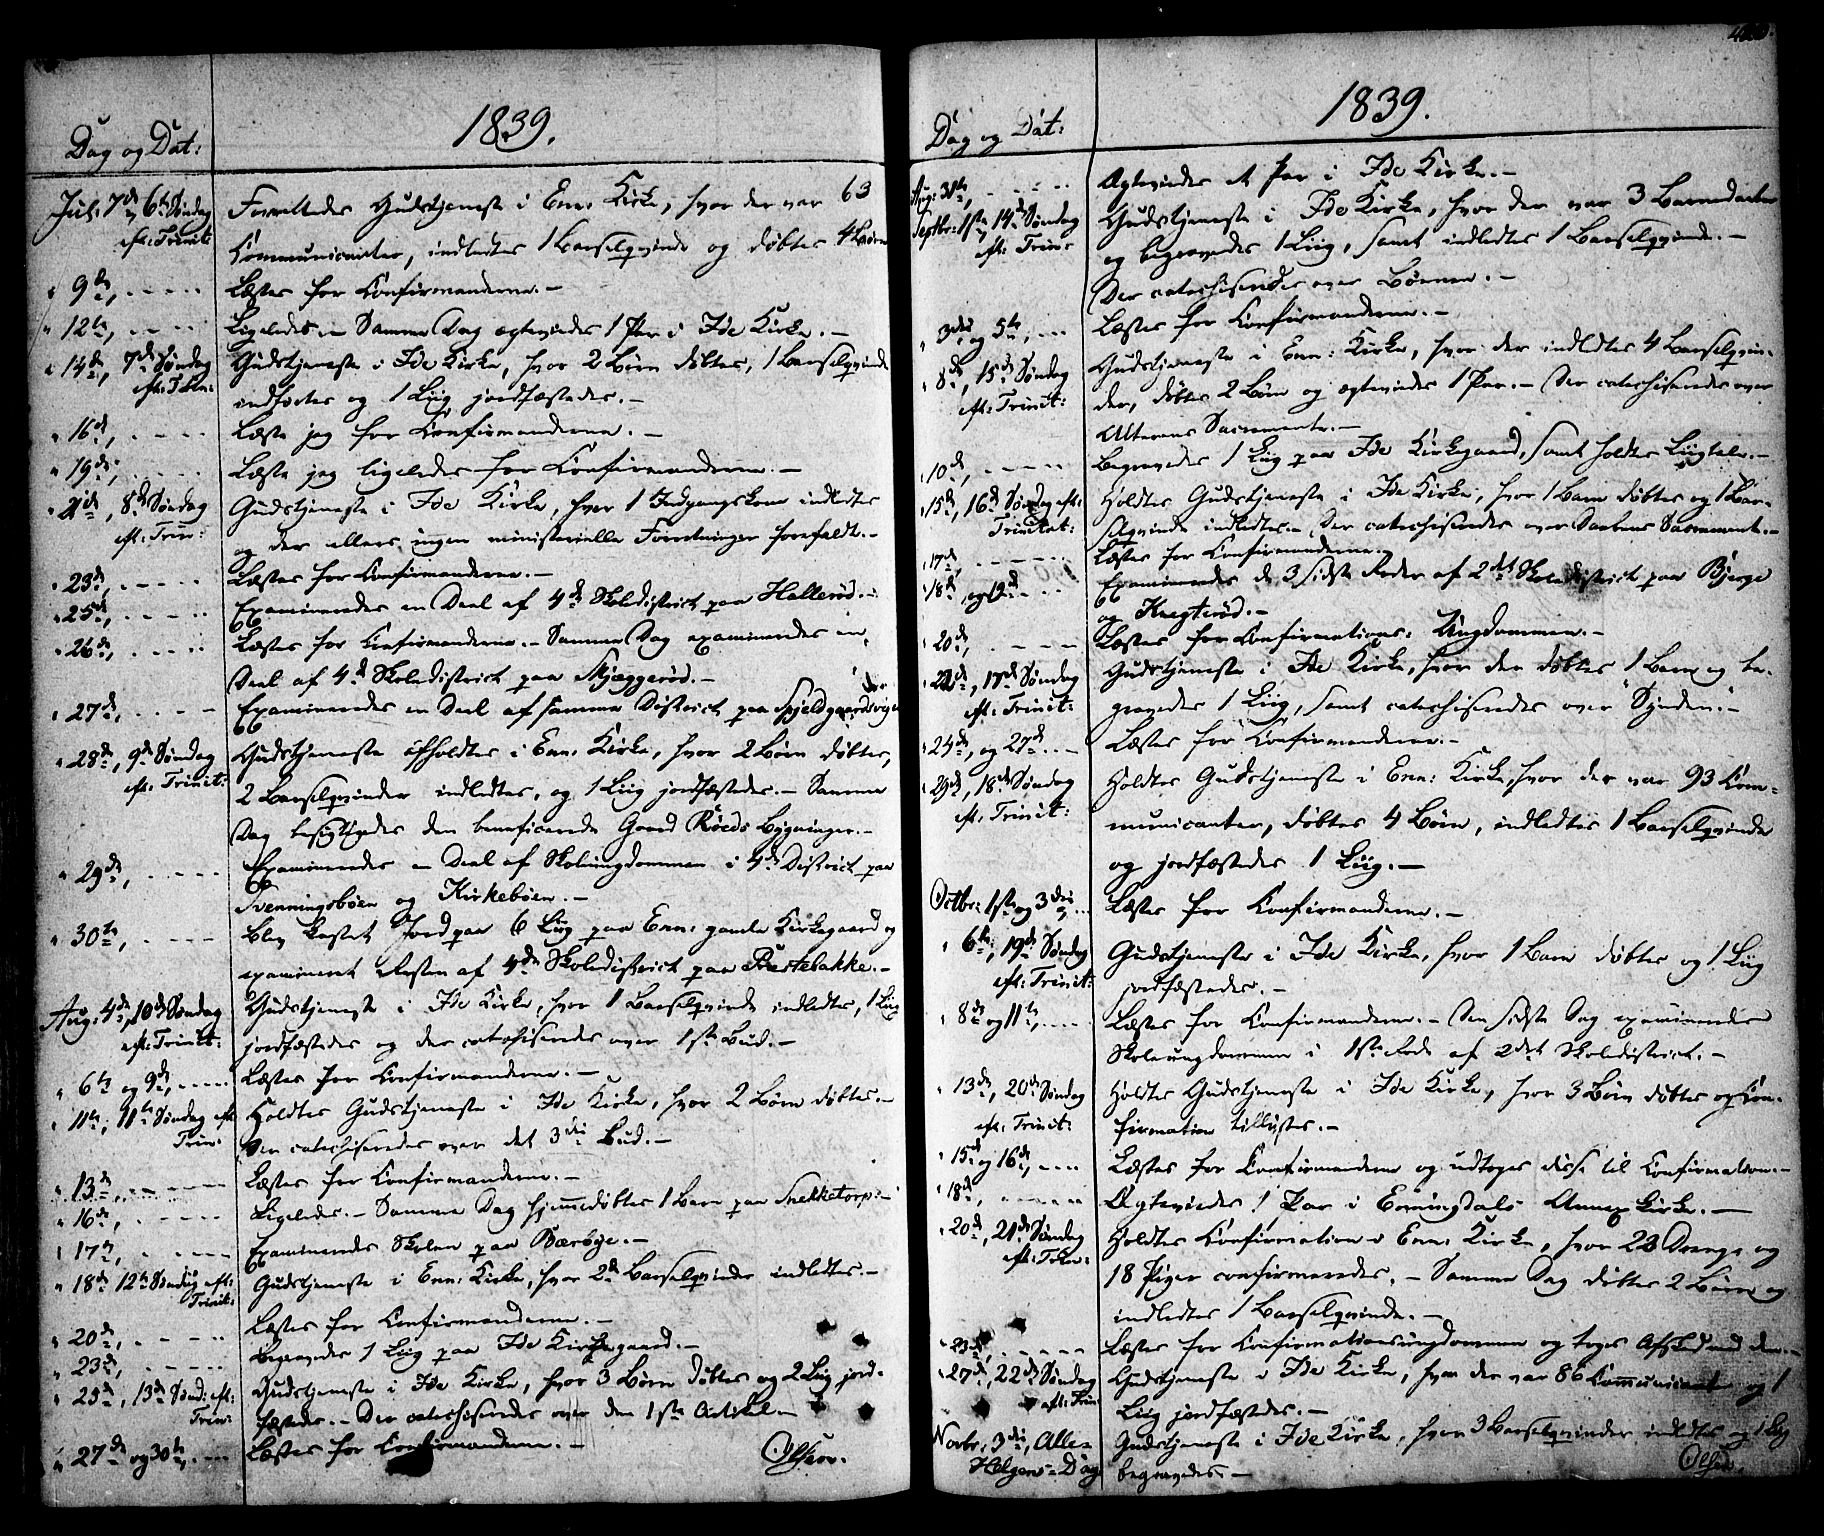 1839.
Dag og Dat:
Jul: 7de, 6te Søndag Forrettedes Gudstjeneste i Enn: Kirke, hvor der var 63
eft: Trinit: Communicanter, indledtes 1 Barselqvinde og døbtes 4 Børn
" 9de, - - - - Læstes for Confirmanderne. -
" 12te, - - - - Ligeledes. - Samme Dag egteviedes 1 Par i Ide Kirke. -
" 14de, 7de Søndag Gudstjeneste i Ide Kirke, hvor 2 Børn døbtes, 1 Barselqvinde
eft: Trin: indledtes og 1 Liig jordfæstedes. -
" 16de, - - - - Læste jeg for Confirmanderne. -
" 19de, - - - - Læste jeg ligeledes for Confirmanderne. -
" 21de, 8de Søndag Gudstjeneste i Ide Kirke, hvor 1 Indgangskone indledtes
eft: Trin: og der ellers ingen ministerielle Forretninger forefaldt. -
" 23de, - - - - Læstes for Confirmanderne. -
" 25de, - - - - Examineredes en Deel af 4de Skoledistrict paa Hallerød. -
" 26de, - - - - Læstes for Confirmanderne. - Samme Dag examineredes en
Deel af 4de Skoledistrict paa Skjæggerød. -
" 27de, - - - Examineredes en Deel af samme District paa Speldgaardsvigen
" 28de, 9de Søndag Gudstjeneste afholdtes i Enn: Kirke, hvor 2 Børn døbtes,
eft: Trinit: 2 Barselqvinder indledtes, og 1 Liig jordfæstedes. - Samme
Dag besigtigedes den beneficerede Gaard Røeds Bygninger. -
" 29de, - - - - Examineredes en Deel af Skoleungdommen i 4de District paa
Svenningsbøen og Kirkebøen. -
" 30te, - - - - Blev kastet Jord paa 6 Liig paa Enn: gamle Kirkegaard og
examineret Resten af 4de Skoledistrict paa Prestebakke. -
Aug: 4de, 10de Søndag Gudstjeneste i Ide Kirke, hvor 1 Barselqvinde indledtes, 1 Liig
eft: Trinit: jordfæstedes og der catechiseredes over 1ste Bud. -
" 6te og 9de, - - - - Læstes for Confirmanderne. -
" 11te, 11te Søndag eft: Holdtes Gudstjeneste i Ide Kirke, hvor 2 Børn døbtes. -
Trin: Der catechiseredes over det 3die Bud. -
" 13de, - - - - Læstes for Confirmanderne. -
" 16de, - - - - Ligeledes. - Samme Dag hjemmedøbtes 1 Barn paa Snekketorp. -
" 17de, - - - - Examineredes Skolen paa Bærbye. -
" 18de 12te Søndag eft: Gudstjeneste i Enn: Kirke, hvor 2de Barselqvinder indledtes. -
Trinit:
" 20de, - - - - Læstes for Confirmanderne. -
" 23de, - - - - Begravedes 1 Liig paa Ide Kirkegaard. -
" 25de, 13de Sønd: eft: Gudstjeneste i Ide Kirke, hvor 3 Børn døbtes og 2 Liig jord-
Trin: fæstedes. - Der catechiseredes over den 1ste Artikel. -
" 27de og 30te, - - - Læstes for Confirmanderne. - Olsen.
1839.
Dag og Dat:
Aug: 31te, - - - - Egteviedes et Par i Ide Kirke. -
Septbr: 1ste, 14de Søndag Gudstjeneste i Ide Kirke, hvor der var 3 Barnedaaber
eft: Trin: og begravedes 1 Liig, samt indledtes 1 Barselqvinde. -
Der catechiseredes over Bønnen. -
" 3die og 5te, - - - Læstes for Confirmanderne. -
" 8de, 15de Søndag Gudstjeneste i Enn: Kirke, hvor der indledtes 4 Barselqvin-
eft: Trinit: der, døbtes 2 Børn og egteviedes 1 Par. - Der catechiseredes over
Alterens Sacramente. -
" 10de, - - - - Begravedes 1 Liig paa Ide Kirkegaard, samt holdtes Liigtale. -
" 15de, 16de Søndag eft: Holdtes Gudstjeneste i Ide Kirke, hvor 1 Barn døbtes og 1 Bar-
Trinitat: selqvinde indledtes. Der catechiseredes over Daabens Sacramente. -
" 17de, - - - - Læstes for Confirmanderne. -
" 18de, og 19de - - - Examineredes de 3 sidste Roder af 2det Skoledistrict paa Bjerge
og Kragterød. -
" 20de, - - - - Læstes for Confirmations: Ungdommen. -
" 22de, 17de Søndag Gudstjeneste i Ide Kirke, hvor der døbtes 1 Barn og be-
eft: Trinit: gravedes 1 Liig, samt catechiseredes over "Synden". -
" 24de, og 27de . . - Læstes for Confirmanderne. -
" 29de, 18de Søndag Holdtes Gudstjeneste i Enn: Kirke, hvor der var 93 Com-
eft: Trinit: municanter, døbtes 4 Børn, indledtes 1 Barselqvinde
og jordfæstedes 1 Liig. -
Octbr: 1ste og 3die . . Læstes for Confirmanderne. -
" 6te, 19de Søndag Gudstjeneste i Ide Kirke, hvor 1 Barn døbtes og 1 Liig
eft: Trinit: jordfæstedes. -
" 8de og 11te, - - - - Læstes for Confirmanderne. - Den sidste Dag examineredes
Skoleungdommen i 1ste Rode af 2det Skoledistrict. -
" 13de, 20de Søndag Holdtes Gudstjeneste i Ide Kirke, hvor 3 Børn døbtes og Con-
eft: Trinit: firmation tillystes. -
" 15de og 16de, - - - Læstes for Confirmanderne og udtoges disse til Confirmation. -
" 18de, - - - - Egteviedes 1 Par i Enningdals Annex Kirke. -
" 20de, 21de Søndag Holdtes Confirmation i Enn: Kirke, hvor 23 Drenge og
eft: Trin: 18 Piger confirmeredes. - Samme Dag døbtes 2 Børn og
indledtes 1 Barselqvinde. -
" 23de, - - - - Læstes for Confirmationsungdommen og toges Afsked med den. -
" 27de, 22de Søndag Gudstjeneste i Ide Kirke, hvor der var 86 Communicant og 1
eft: Trin: Liig jordfæstedes. -
Novbr: 3die, Alle- Gudstjeneste i Ide Kirke, hvor 3 Barselqvinder indledtes og 1 Liig
Helgens-Dag begravedes. - Olsen.